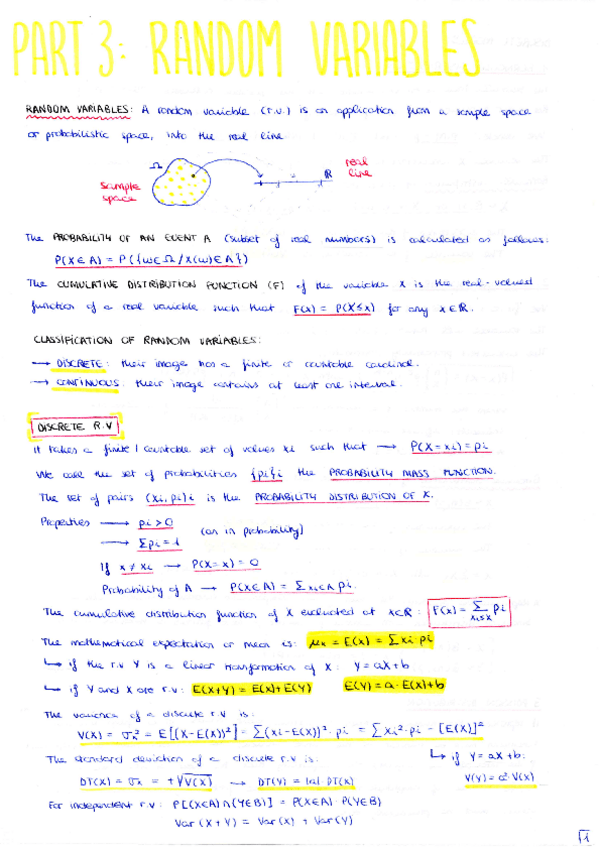 PART 3: RANDOM VARIABLES
RANDOM VARIABLES: A random variable (r.v.) is an application from a sample space
or probabilistic space, into the real line
Ω
sample
space
ℝ
real
line
The PROBABILITY OF AN EVENT A (subset of real numbers) is calculated as follows:
P(X∈A) = P({ω∈Ω / X(ω)∈A})
The CUMULATIVE DISTRIBUTION FUNCTION (F) of the variable X is the real-valued
function of a real variable such that F(x) = P(X≤x) for any x∈ℝ.
CLASSIFICATION OF RANDOM VARIABLES:
→ DISCRETE: their image has a finite or countable cardinal.
→ CONTINUOUS: their image contains at least one interval.
DISCRETE R.V
It takes a finite / countable set of values xi such that → P(X=xi)=pi
We call the set of probabilities {pi}i the PROBABILITY MASS FUNCTION.
The set of pairs (xi, pi)i is the PROBABILITY DISTRIBUTION OF X.
Properties → pi>0
→ Σpi=1 (as in probability)
If x≠xi → P(X=x)=0
Probability of A → P(X∈A) = Σxi∈A pi.
The cumulative distribution function of X evaluated at x∈ℝ: F(x) = Σ xi≤x pi
The mathematical expectation or mean is: μx = E(X) = Σxi·pi
↳ if the r.v Y is a linear transformation of X: Y=aX+b
↳ if Y and X are r.v: E(X+Y)=E(X)+E(Y) E(Y)=a·E(X)+b
The variance of a discrete r.v is:
V(X) = σx² = E[(X-E(X))²] = Σ(xi-E(X))²·pi = Σxi²·pi - [E(X)]²
The standard deviation of a discrete r.v is: ↳ if Y=aX+b:
DT(X) = σx = +√V(X) → DT(Y) = |a|·DT(X) V(Y)=a²·V(X)
For independent r.v: P[(X∈A)∩(Y∈B)] = P(X∈A)·P(Y∈B)
Var(X+Y) = Var(X) + Var(Y)
1